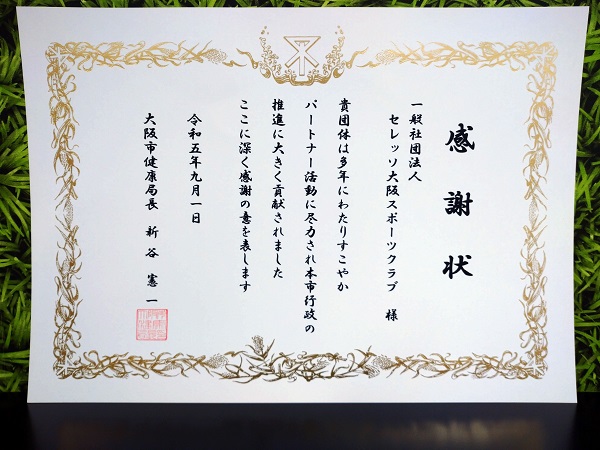 感謝状
一般社団法人
セレッソ大阪スポーツクラブ 様
貴団体は多年にわたりすこやか
パートナー活動に尽力され本市行政の
推進に大きく貢献されました
ここに深く感謝の意を表します
令和五年九月一日
大阪市健康局長 新谷憲一